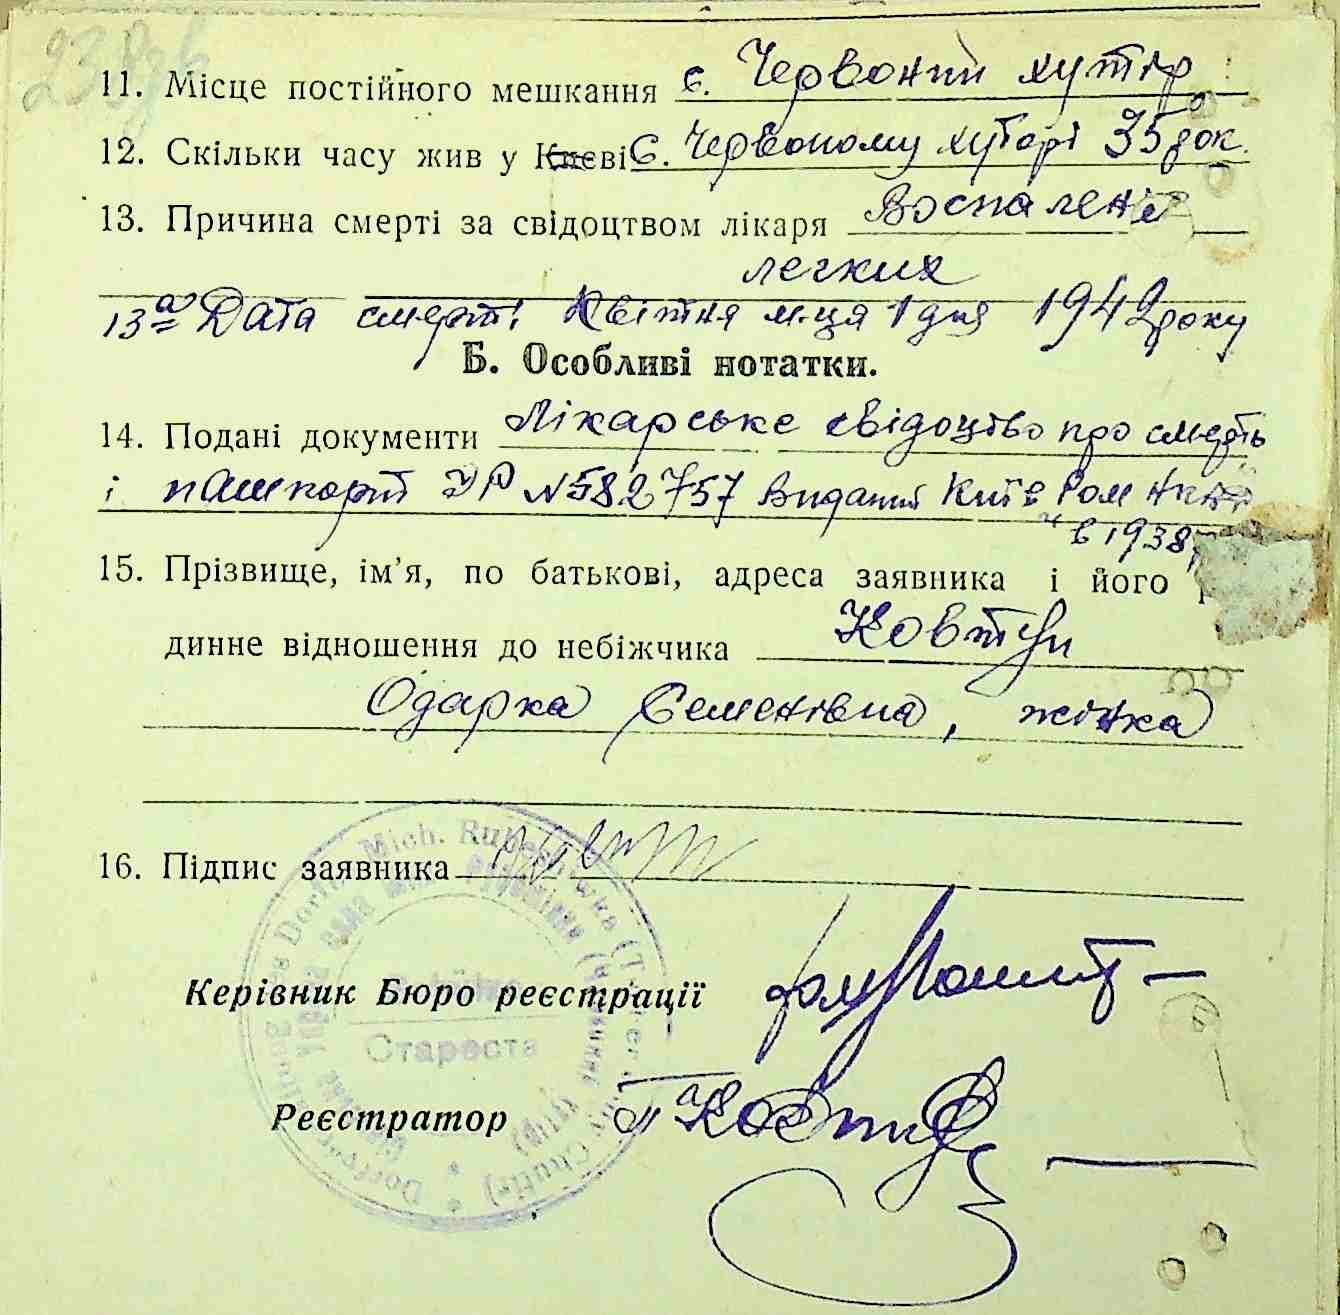 11. Місце постійного мешкання с. Червоний хутір
12. Скільки часу жив у Києві С. Червоному хуторі 35 рок.
13. Причина смерті за свідоцтвом лікаря Воспаленіє
легких
13а Дата смерті Квітня м-ця 1 дня 1942 року
Б. Особливі нотатки.
14. Подані документи Лікарське свідоцтво про смерть
і пашпорт № 582757 виданий Київ
в 1938
15. Прізвище, ім’я, по батькові, адреса заявника і його
динне відношення до небіжчика Ковтун
Одарка Семенівна, жінка
16. Підпис заявника
Керівник Бюро реєстрації
Староста
Реєстратор